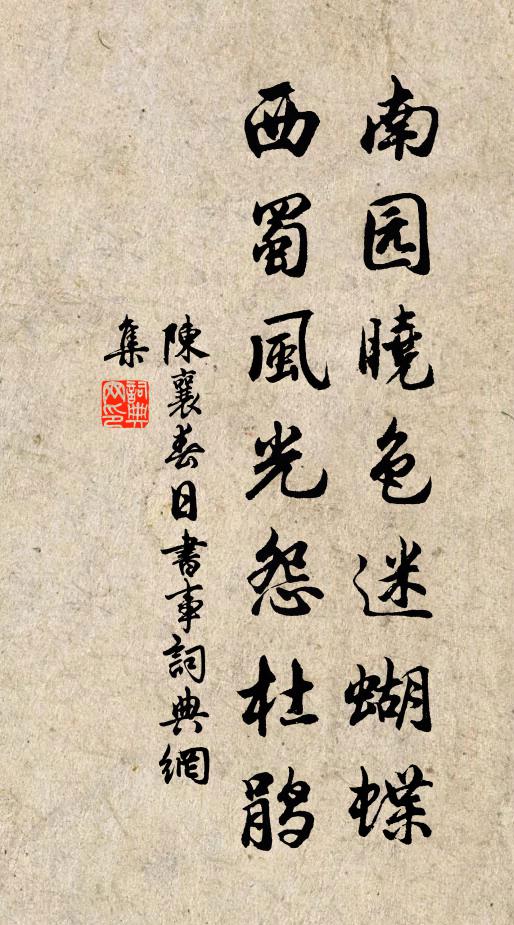 南园曉色迷蝴蝶
西蜀風光怨杜鹃
陳襄春日書事詞典網
集
詞典
网印